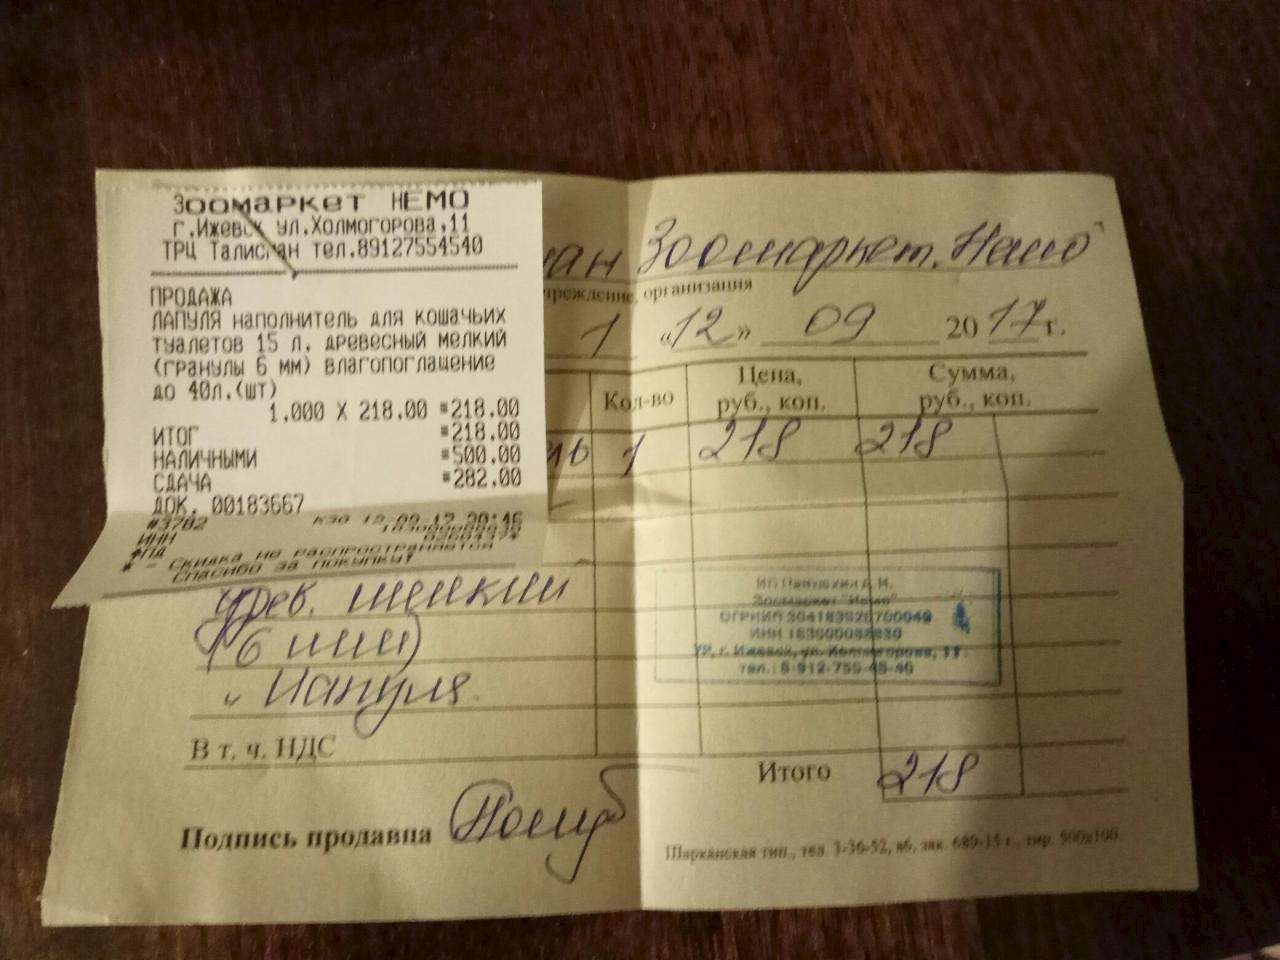 Зоомаркет НЕМО
г.Ижевск ул.Холмогорова,11
ТРЦ Талисман тел.89127554540
ПРОДАЖА
ЛАПУЛЯ наполнитель для кошачьих
туалетов 15 л. древесный мелкий
(гранулы 6 мм) влагопоглащение
до 40л.(шт)
1.000 X 218.00 =218.00
ИТОГ =218.00
НАЛИЧНЫМИ =500.00
СДАЧА =282.00
ДОК. 00183667
#3782 20:46
ИНН
ФПД
* - Скидка не распространяется
Спасибо за покупку!
Зоомаркет. Немо
учреждение, организация
1 «12» 09 2017г.
Кол-во Цена, руб., коп. Сумма, руб., коп.
1 218 218
древ. мелкий
(6 мм)
Лапуля
Зоомаркет "Немо"
ОГРНИП
ИНН
УР, г. Ижевск, ул. Холмогорова, 11
тел.: 8-912-755-45-40
В т. ч. НДС
Итого 218
Подпись продавца
Шарканская тип., тел. 3-36-52, в6, зак. 689-15 г., тир. 500х100